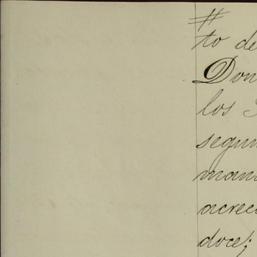 #
to de
Don
los
segun
man
acree
doce;